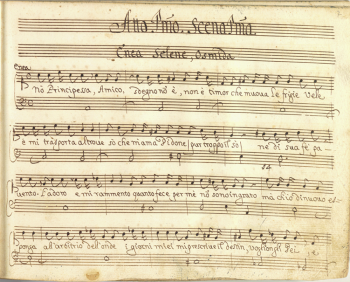 Atto Pmo. Scena Pma.
Enea Selene, Osmida
Enea
Nò Principessa, Amico, Sdegno nò è, non è timor che muove le frigie Vele
e mi trasporta altrove sò che m'ama Didone pur troppo il sò ne di sua fe pa-
vento. L'adoro e mi rammento quanto fece per me nò sono ingrato ma ch'io di nuovo es-
ponga all'arbitrio dell'onde i giorni miei mi prescrive il destin, voglion gli Dei